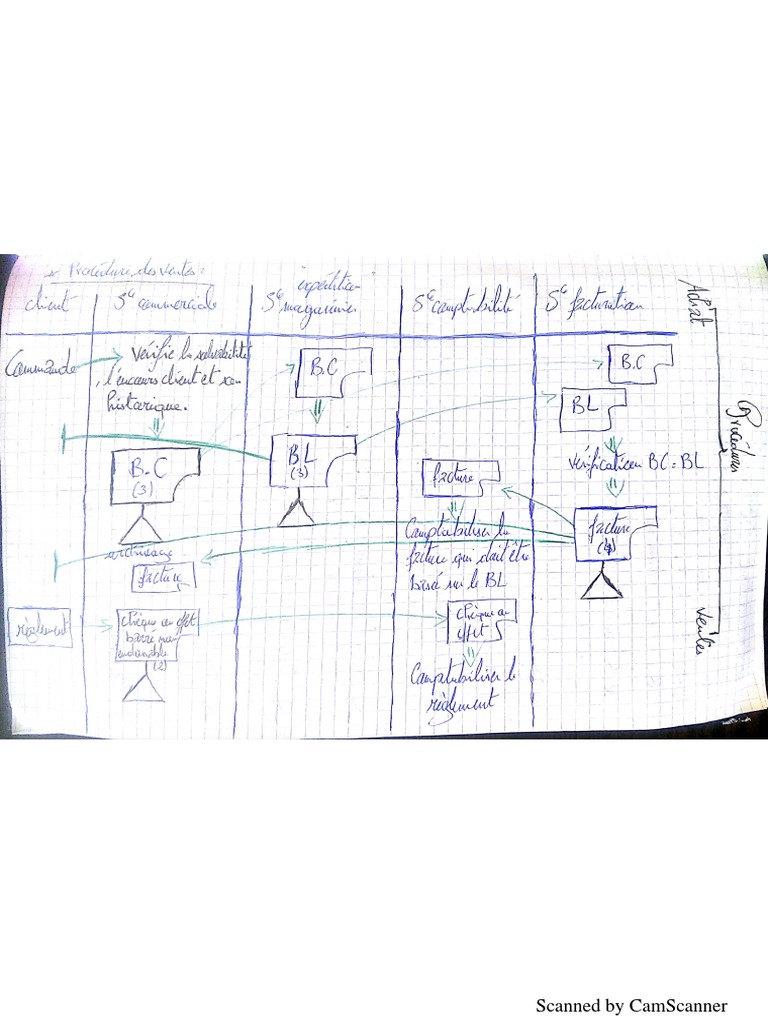 * Procédure des ventes :
client
Sce commerciale
"expédition"
Sce magasinier
Sce comptabilité
Sce facturation
Commande
Vérifie la solvabilité
, l'encours client et son
historique.
B.C
(3)
archivage
facture
règlement
chèque ou effet
barré non
endossable
(2)
B.C
BL
(3)
facture
Comptabiliser la
facture qui doit être
basé sur le BL
chèque ou
effet
Comptabiliser le
règlement
B.C
BL
vérification BC = BL
facture
(4)
Achat
Procédures
ventes
Scanned by CamScanner